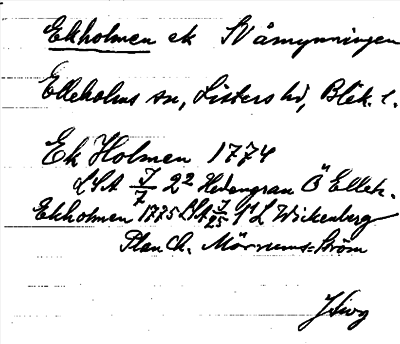 Ekholmen ek SV åmynningen
Elleholms sn, Listers hd, Blek. l.
Ek Holmen 1774
LSA J/7 2² Hedengran Ö Elleh.
Ekholmen 1775 LSA J/25 1¹ L Wickenberg
Plan Ch. Mörrums-ström